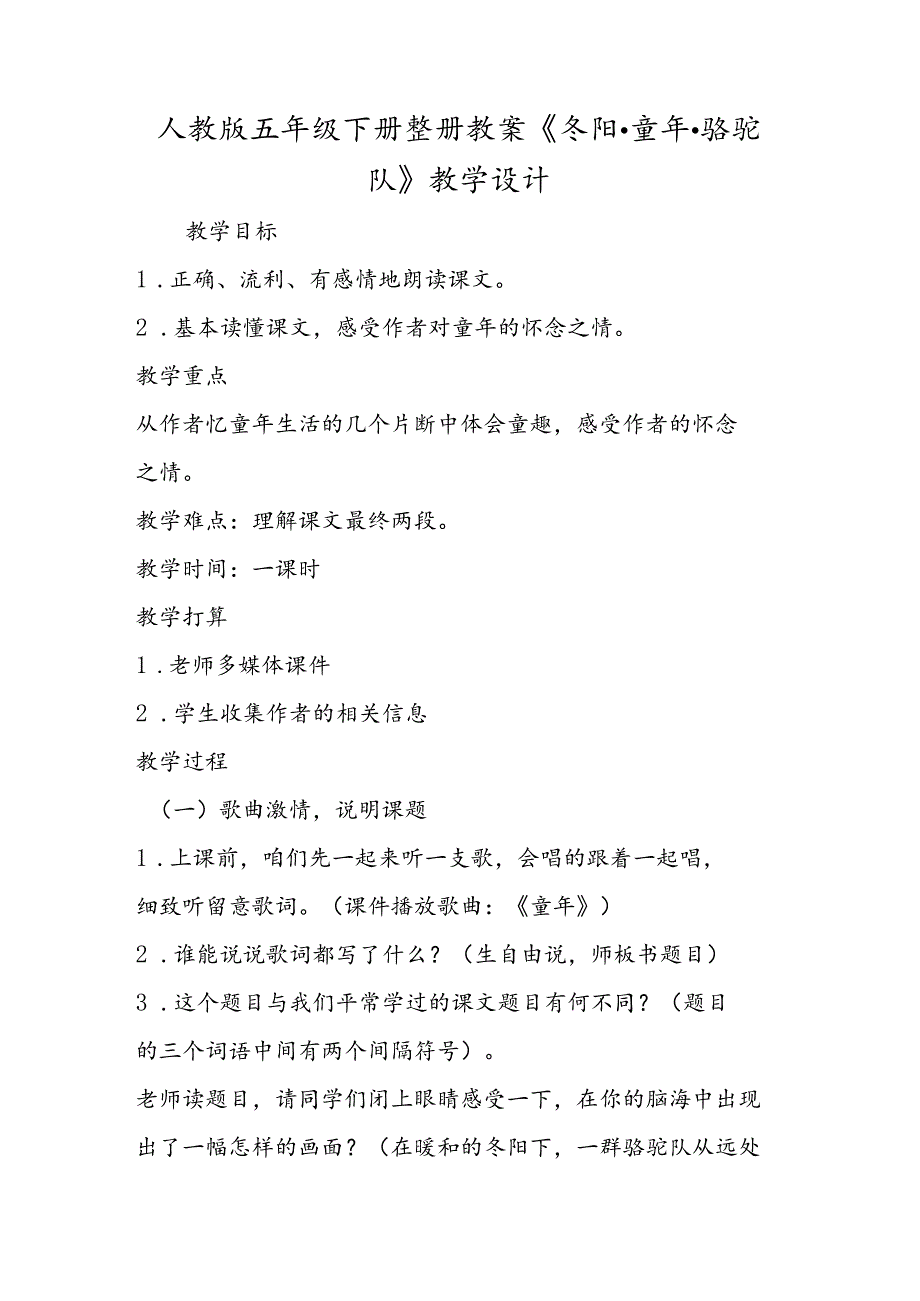 人教版五年级下册整册教案《冬阳•童年•骆驼
队》教学设计
教学目标
1 .正确、流利、有感情地朗读课文。
2 .基本读懂课文，感受作者对童年的怀念之情。
教学重点
从作者忆童年生活的几个片断中体会童趣，感受作者的怀念
之情。
教学难点：理解课文最终两段。
教学时间：一课时
教学打算
1 .老师多媒体课件
2 .学生收集作者的相关信息
教学过程
（一）歌曲激情，说明课题
1 .上课前，咱们先一起来听一支歌，会唱的跟着一起唱，
细致听留意歌词。（课件播放歌曲：《童年》）
2 .谁能说说歌词都写了什么？（生自由说，师板书题目）
3 .这个题目与我们平常学过的课文题目有何不同？（题目
的三个词语中间有两个间隔符号）。
老师读题目，请同学们闭上眼睛感受一下，在你的脑海中出现
出了一幅怎样的画面？（在暖和的冬阳下，一群骆驼队从远处